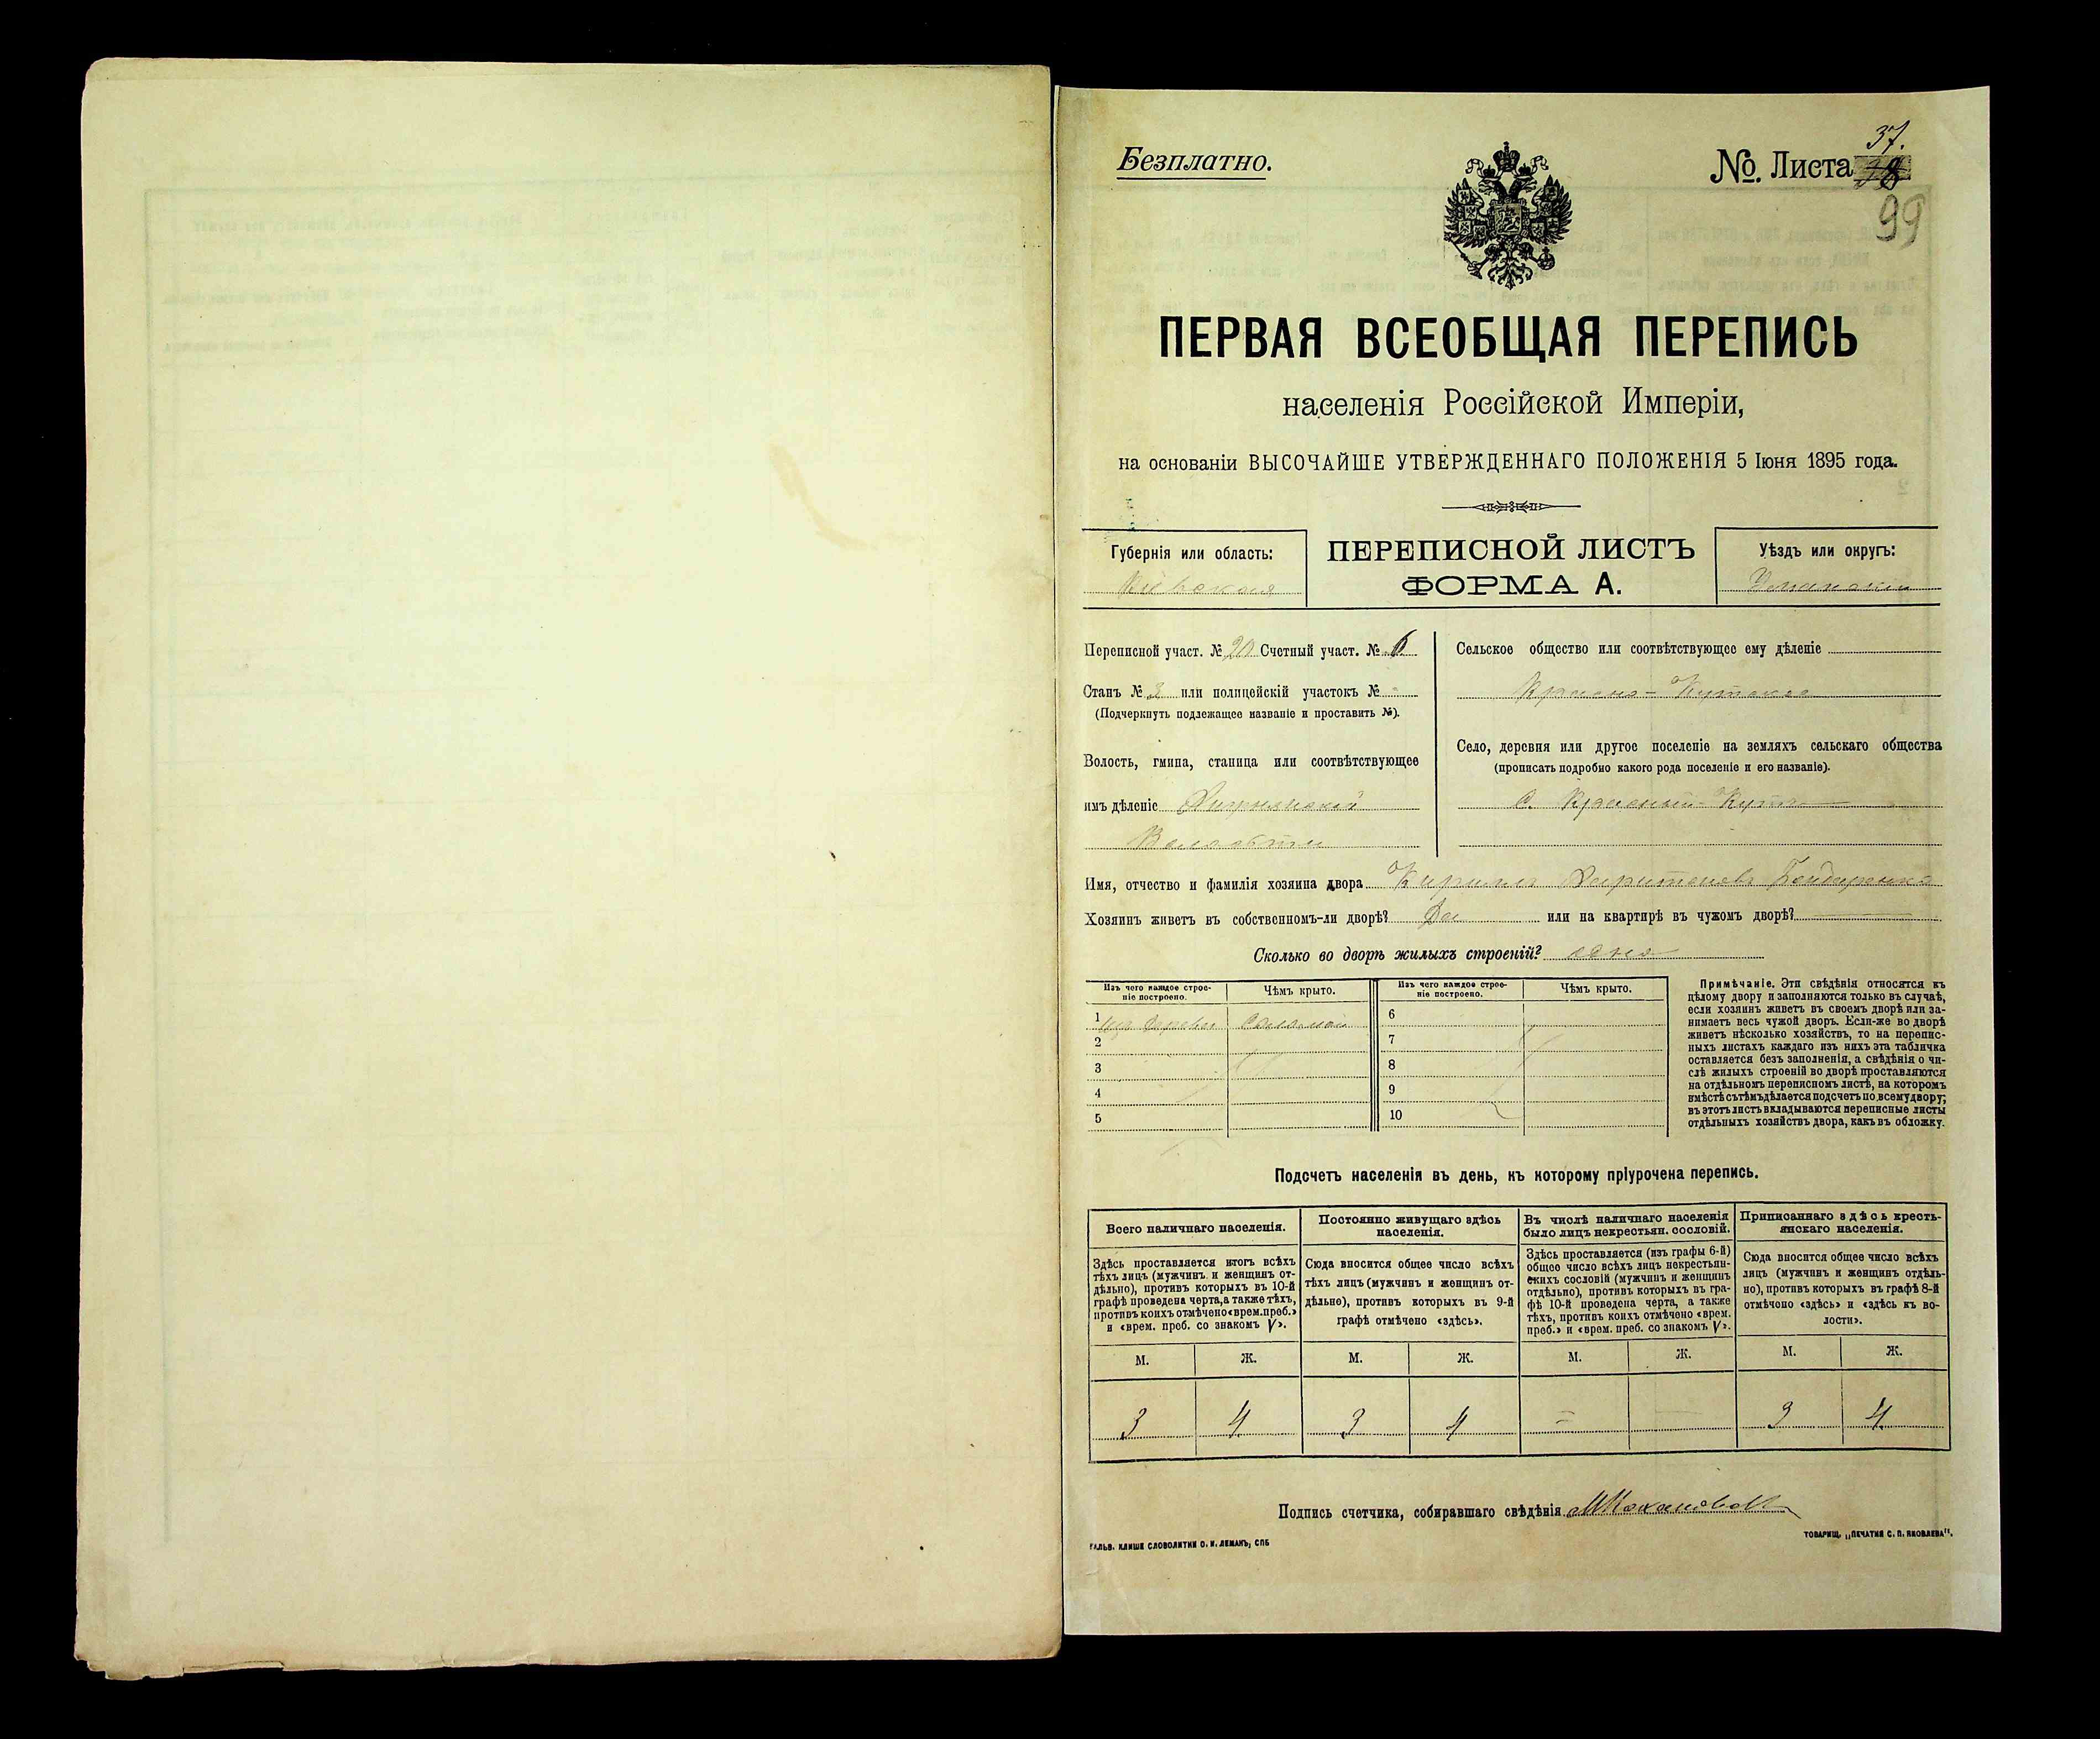 Безплатно.
№. Листа 38
37.
99
ПЕРВАЯ ВСЕОБЩАЯ ПЕРЕПИСЬ
населенія Россійской Имперіи,
на основаніи ВЫСОЧАЙШЕ УТВЕРЖДЕННАГО ПОЛОЖЕНІЯ 5 Іюня 1895 года.
Губернія или область:
Кіевская
ПЕРЕПИСНОЙ ЛИСТЪ
ФОРМА А.
Уѣздъ или округъ:
Уманскій
Переписной участ. № 20 Счетный участ. № 6
Станъ № 2 или полицейскій участокъ № -
(Подчеркнуть подлежащее названіе и проставить №).
Волость, гмина, станица или соотвѣтствующее
имъ дѣленіе
Волости
Сельское общество или соотвѣтствующее ему дѣленіе
Красно-Кутское
Село, деревня или другое поселеніе на земляхъ сельскаго общества
(прописать подробно какого рода поселеніе и его названіе).
С. Красный-Кутъ
Имя, отчество и фамилія хозяина двора Кирилъ Харитоновъ Бондаренко
Хозяинъ живетъ въ собственномъ-ли дворѣ? Да или на квартирѣ въ чужомъ дворѣ? —
Сколько во дворѣ жилыхъ строеній? одно
Изъ чего каждое строеніе построено.
Чѣмъ крыто.
Изъ чего каждое строеніе построено.
Чѣмъ крыто.
1 изъ дерева Соломой
2
3
4
5
6
7
8
9
10
Примѣчаніе. Эти свѣдѣнія относятся къ
цѣлому двору и заполняются только въ случаѣ,
если хозяинъ живетъ въ своемъ дворѣ или за-
нимаетъ весь чужой дворъ. Если-же во дворѣ
живетъ нѣсколько хозяйствъ, то на перепис-
ныхъ листахъ каждаго изъ нихъ эта табличка
оставляется безъ заполненія, а свѣдѣнія о чи-
слѣ жилыхъ строеній во дворѣ проставляются
на отдѣльномъ переписномъ листѣ, на которомъ
вмѣстѣ съ тѣмъ дѣлается подсчетъ по всему двору;
въ этотъ листъ вкладываются переписные листы
отдѣльныхъ хозяйствъ двора, какъ въ обложку.
Подсчетъ населенія въ день, къ которому пріурочена перепись.
Всего наличнаго населенія.
Здѣсь проставляется итогъ всѣхъ
тѣхъ лицъ (мужчинъ и женщинъ от-
дѣльно), противъ которыхъ въ 10-й
графѣ проведена черта, а также тѣхъ,
противъ коихъ отмѣчено «врем. преб.»
и «врем. преб. со знакомъ V».
М. Ж.
3 4
Постоянно живущаго здѣсь
населенія.
Сюда вносится общее число всѣхъ
тѣхъ лицъ (мужчинъ и женщинъ от-
дѣльно), противъ которыхъ въ 9-й
графѣ отмѣчено «здѣсь».
М. Ж.
3 4
Въ числѣ наличнаго населенія
было лицъ некрестьян. сословій.
Здѣсь проставляется (изъ графы 6-й)
общее число всѣхъ лицъ некрестьян-
скихъ сословій (мужчинъ и женщинъ
отдѣльно), противъ которыхъ въ гра-
фѣ 10-й проведена черта, а также
тѣхъ, противъ коихъ отмѣчено «врем.
преб.» и «врем. преб. со знакомъ V».
М. Ж.
— —
Приписаннаго здѣсь кресть-
янскаго населенія.
Сюда вносится общее число всѣхъ
лицъ (мужчинъ и женщинъ отдѣль-
но), противъ которыхъ въ графѣ 8-й
отмѣчено «здѣсь» и «здѣсь къ во-
лости».
М. Ж.
3 4
Подпись счетчика, собиравшаго свѣдѣнія
ГАЛЬВ. КЛИШЕ СЛОВОЛИТНИ О. И. ЛЕМАНЪ, СПБ
ТОВАРИЩ. „ПЕЧАТНЯ С. П. ЯКОВЛЕВА".